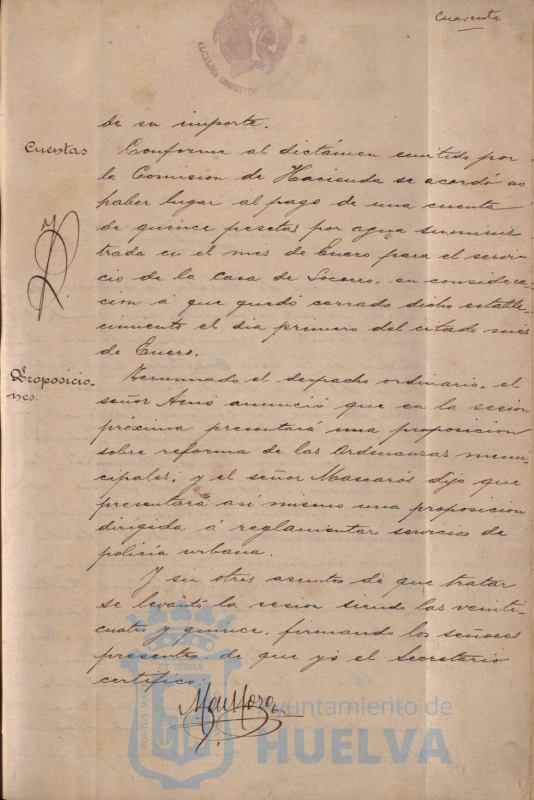 Cuarenta
de su importe.
Cuentas
Conforme al dictámen emitido por
la Comision de Hacienda se acordó no
haber lugar al pago de una cuenta
de quince pesetas por agua suminis
trada en el mes de Enero para el servi
cio de la Casa de Socorro, en considera-
cion á que quedó cerrado dicho estable-
cimiento el dia primero del citado mes
de Enero.
Proposicio-
nes.
Terminado el despacho ordinario, el
señor anunció que en la sesion
próxima presentará una proposicion
sobre reforma de las Ordenanzas muni
cipales, y el señor Mascarós dijo que
presentará asi mismo una proposicion
dirigida á reglamentar servicios de
policía urbana.
Y sin otros asuntos de que tratar
se levantó la sesion siendo las veinti-
cuatro y quince, firmando los señores
presentes, de que yó el Secretario
certifico.
Ayuntamiento de
HUELVA
PORTUS MARIS
ET TERRÆ